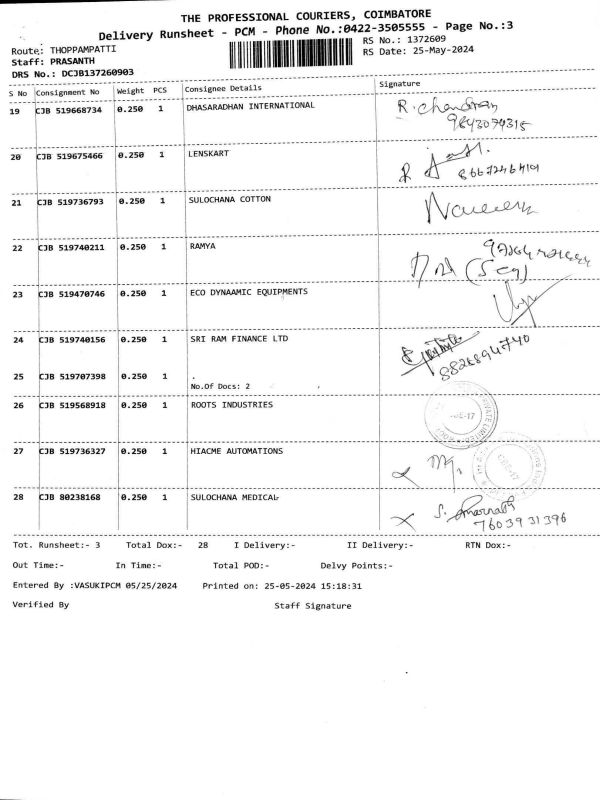 THE PROFESSIONAL COURIERS, COIMBATORE
Delivery Runsheet - PCM - Phone No.:0422-3505555 - Page No.:3
Route: THOPPAMPATTI
RS No.: 1372609
Staff: PRASANTH
RS Date: 25-May-2024
DRS No.: DCJB137260903
S No Consignment No Weight PCS Consignee Details Signature
19 CJB 519668734 0.250 1 DHASARADHAN INTERNATIONAL R. chandran
9843079315
20 CJB 519675466 0.250 1 LENSKART
21 CJB 519736793 0.250 1 SULOCHANA COTTON
22 CJB 519740211 0.250 1 RAMYA
23 CJB 519470746 0.250 1 ECO DYNAAMIC EQUIPMENTS
24 CJB 519740156 0.250 1 SRI RAM FINANCE LTD
8826894740
25 CJB 519707398 0.250 1 .
No.Of Docs: 2
26 CJB 519568918 0.250 1 ROOTS INDUSTRIES
27 CJB 519736327 0.250 1 HIACME AUTOMATIONS
28 CJB 80238168 0.250 1 SULOCHANA MEDICAL
7603931396
Tot. Runsheet:- 3 Total Dox:- 28 I Delivery:- II Delivery:- RTN Dox:-
Out Time:- In Time:- Total POD:- Delvy Points:-
Entered By :VASUKIPCM 05/25/2024 Printed on: 25-05-2024 15:18:31
Verified By Staff Signature